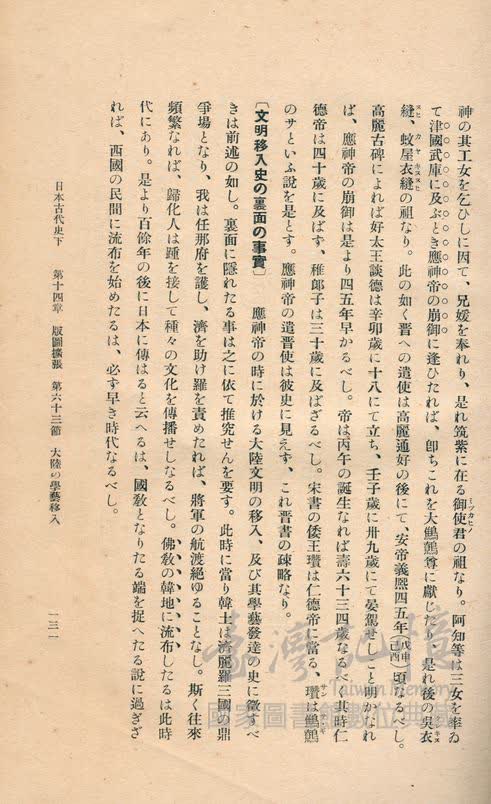 神の其工女を乞ひしに因て、兄媛を奉れり、是れ筑紫に在る御使君の祖なり。阿知等は三女を率ゐ
ミツカヒノ
て津國武庫に及ぶとき應神帝の崩御に逢ひたれば、卽ちこれを大鷦鷯尊に獻じたり、是れ後の吳衣
クレキヌ
縫、蚊屋衣縫の祖なり。此の如く晋への遣使は高麗通好の後にて、安帝義熙四五年(戊申己酉)頃なるべし。
ヌヒ カヤ キヌヌヒ
高麗古碑によれば好太王談德は辛卯歲に十八にて立ち、壬子歲に卅九歲にて晏駕せしこと明かなれ
ば、應神帝の崩御は是より四五年早かるべし。帝は丙午の誕生なれば壽六十三四歲なるべく其時仁
德帝は四十歲に及ばず、稚郞子は三十歲に及ばざるべし。宋書の倭王瓚は仁德帝に當る、瓚は鷦鷯
サン サヽギ
のサといふ說を是とす。應神帝の遣晋使は彼史に見えず、これ晋書の疎略なり。
〔文明移入史の裏面の事實〕 應神帝の時に於ける大陸文明の移入、及び其學藝發達の史に徵すべ
きは前述の如し。裏面に隱れたる事は之に依て推究せんを要す。此時に當り韓土は濟麗羅三國の鼎
爭場となり、我は任那府を護し、濟を助け羅を責めたれば、將軍の航渡絕ゆることなし。斯く往來
頻繁なれば、歸化人は踵を接して種々の文化を傳播せしなるべし。佛敎の韓地に流布したるは此時
代にあり。是より百餘年の後に日本に傳はると云へるは、國敎となりたる端を捉へたる說に過ぎざ
れば、西國の民間に流布を始めたるは、必ず早き時代なるべし。
日本古代史下 第十四章 版圖擴張 第六十三節 大陸の學藝移入
一三一
臺灣記憶
Taiwan Memory
國家圖書館數位典藏